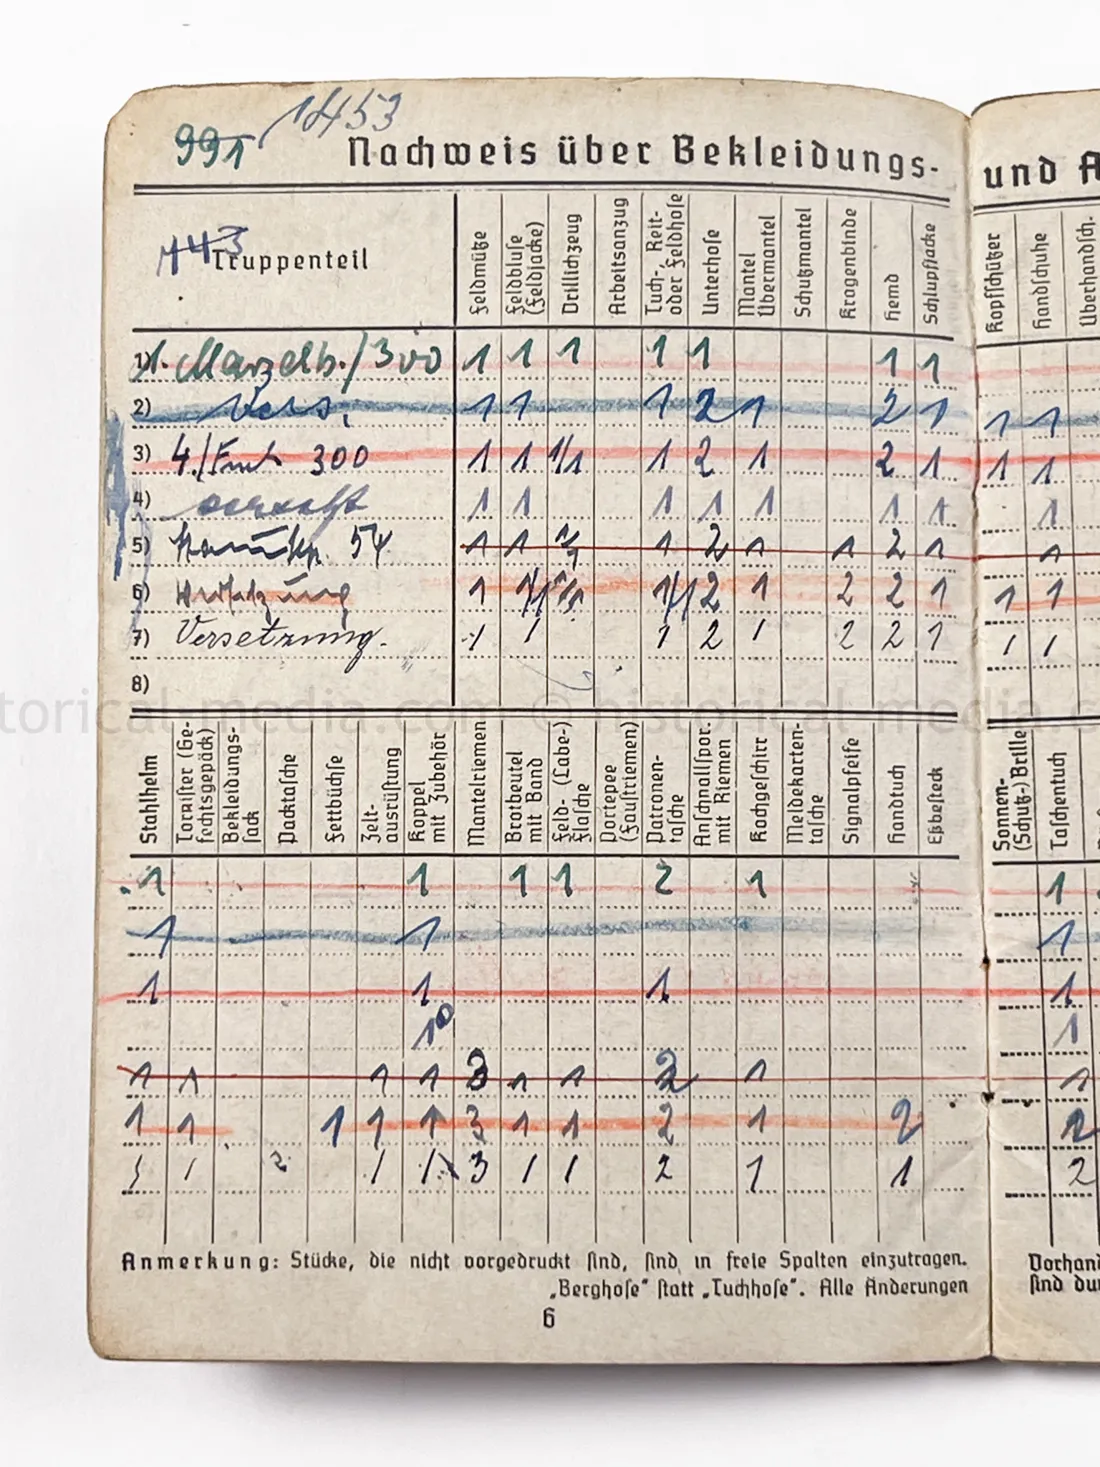 991 1453
Nachweis über Bekleidungs-
und
443
Truppenteil
Feldmütze
Feldbluse (Feldjacke)
Drillichzeug
Arbeitsanzug
Tuch-, Reit- oder Feldhose
Unterhose
Mantel Übermantel
Schutzmantel
Kragenbinde
Hemd
Schlupfjacke
Kopfschützer
Handschuhe
Überhandsch.
1) 1. Marschb./300 1 1 1 1 1 1 1
2) Vers. 1 1 1 2 1 2 1 1 1
3) 4./ 300 1 1 1/1 1 2 1 2 1 1 1
4) versetzt 1 1 1 1 1 1 1 1
5) 54 1 1 1 2 1 1 2 1 1
6) Versetzung 1 1/1 1/1 2 1 2 2 1 1 1
7) Versetzung. 1 1 1 2 1 2 2 1 1 1
8)
historical-media.com © historical-media.c
Stahlhelm
Tornister (Gefechtsgepäck)
Bekleidungssack
Packtasche
Fettbüchse
Zeltausrüstung
Koppel mit Zubehör
Mantelriemen
Brotbeutel mit Band
Feld- (Labe-) Flasche
Portepee (Faustriemen)
Patronentasche
Anschnallspor. mit Riemen
Kochgeschirr
Meldekartentasche
Signalpfeife
Handtuch
Eßbesteck
Sonnen- (Schutz-) Brille
Taschentuch
1 1 1 1 2 1 1
1 1 1
1 1 1 1
10 1
1 1 1 1 3 1 1 2 1 1
1 1 1 1 1 3 1 1 2 1 2 2
1 1 2 1 1 3 1 1 2 1 1 2
Anmerkung: Stücke, die nicht vorgedruckt sind, sind in freie Spalten einzutragen.
„Berghose“ statt „Tuchhose“. Alle Änderungen
Vorhand
sind du
6